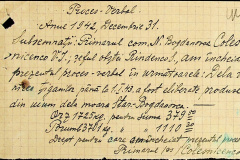 Proces-Verbal
Anul 1942, Decembrie 31.
Subsemnații: Primarul com. N. Bogdanovca Colo
micenco V. I., șeful obștei am încheiat
prezentul proces-verbal în următoarele: Dela
la 1.I.43 a fost eliberat produse
din uium dela moara Star-Bogdanovca.
Orz 1725 kgr. pentru suma 379
Porumb 3701 kg. " " 1110
Drept pentru care am încheiat prezentul proces
Primarul